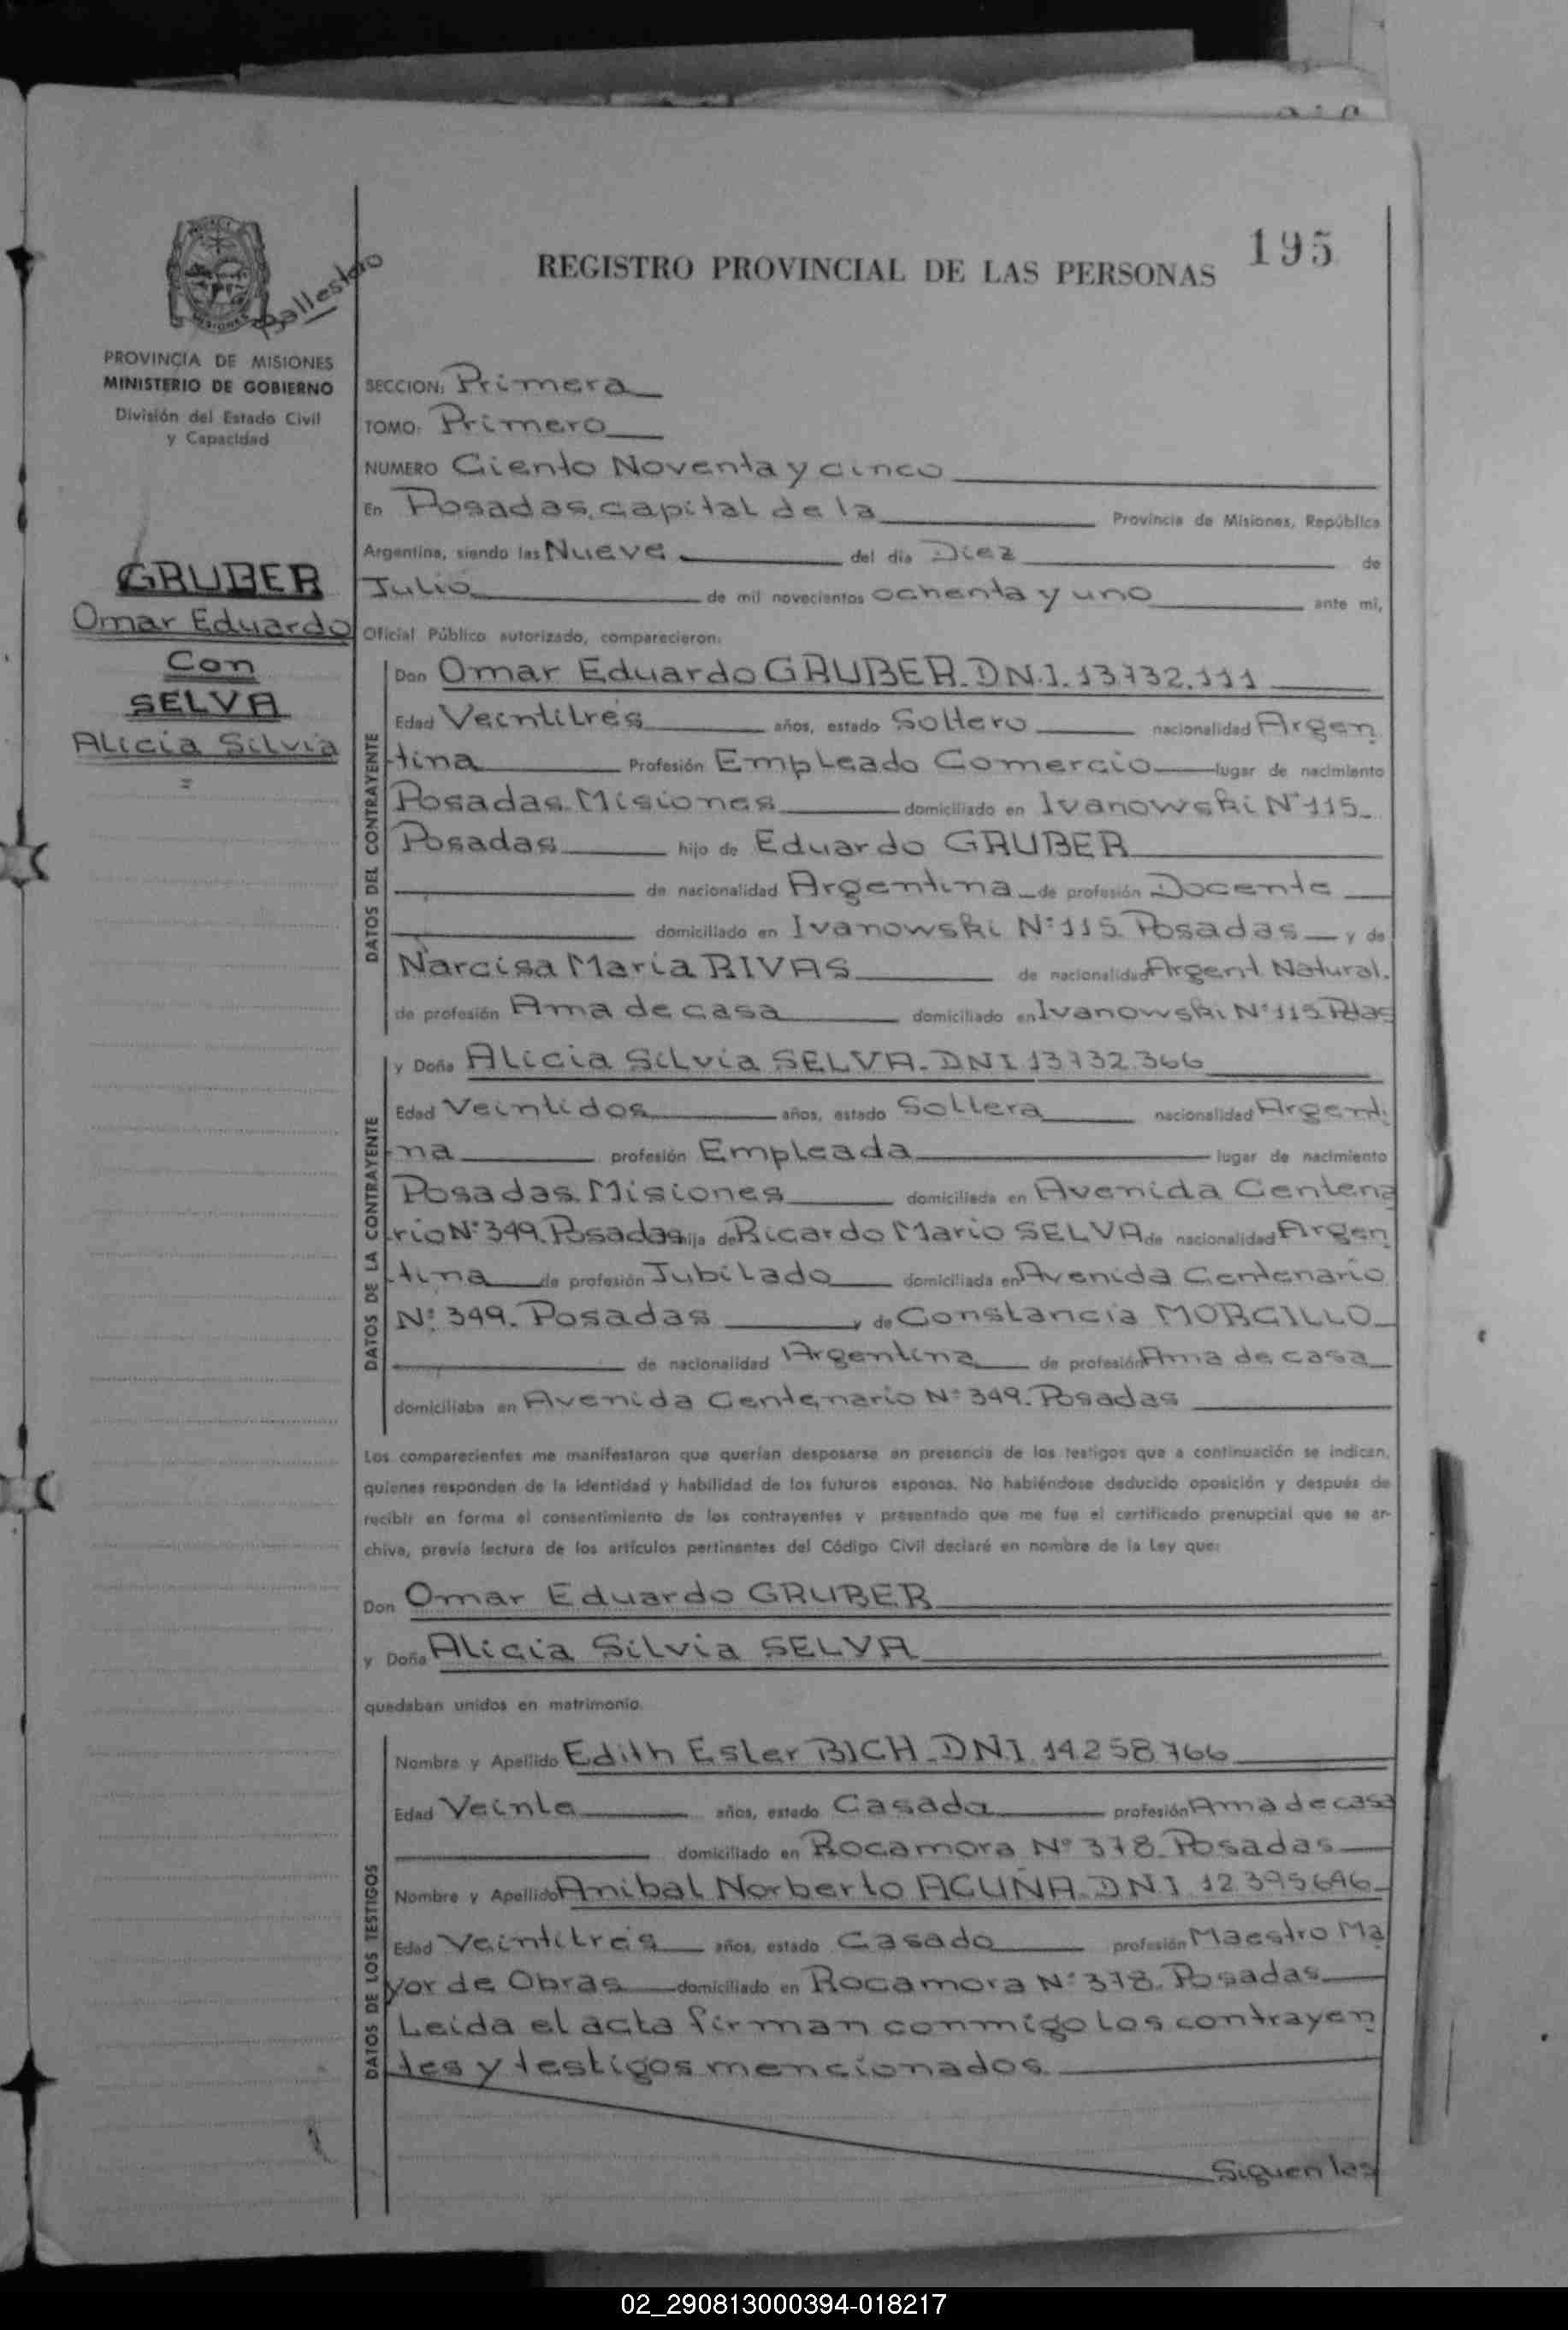 195
REGISTRO PROVINCIAL DE LAS PERSONAS
MISIONES
Ballestero
PROVINCIA DE MISIONES
MINISTERIO DE GOBIERNO
División del Estado Civil
y Capacidad
GRUBER
Omar Eduardo
Con
SELVA
Alicia Silvia
=
SECCION: Primera
TOMO: Primero
NUMERO Ciento Noventa y cinco
En Posadas, capital de la Provincia de Misiones, República
Argentina, siendo las Nueve del día Diez de
Julio de mil novecientos ochenta y uno ante mí,
Oficial Público autorizado, comparecieron:
DATOS DEL CONTRAYENTE
Don Omar Eduardo GRUBER. D.N.I. 13.732.111
Edad Veintitrés años, estado Soltero nacionalidad Argen
tina Profesión Empleado Comercio lugar de nacimiento
Posadas. Misiones domiciliado en Ivanowski N°115.
Posadas hijo de Eduardo GRUBER
de nacionalidad Argentina de profesión Docente
domiciliado en Ivanowski N°115. Posadas y de
Narcisa María RIVAS de nacionalidad Argent Natural.
de profesión Ama de casa domiciliado en Ivanowski N°115. Pdas
DATOS DE LA CONTRAYENTE
y Doña Alicia Silvia SELVA. DNI 13732.366
Edad Veintidos años, estado Soltera nacionalidad Argenti
na profesión Empleada lugar de nacimiento
Posadas. Misiones domiciliada en Avenida Centena
rio N°349. Posadas hija de Ricardo Mario SELVA de nacionalidad Argen
tina de profesión Jubilado domiciliada en Avenida Centenario
N° 349. Posadas y de Constancia MORCILLO
de nacionalidad Argentina de profesión Ama de casa
domiciliaba en Avenida Centenario N° 349. Posadas
Los comparecientes me manifestaron que querían desposarse en presencia de los testigos que a continuación se indican,
quienes responden de la identidad y habilidad de los futuros esposos. No habiéndose deducido oposición y después de
recibir en forma el consentimiento de los contrayentes y presentado que me fue el certificado prenupcial que se ar-
chiva, previa lectura de los artículos pertinentes del Código Civil declaré en nombre de la Ley que:
Don Omar Eduardo GRUBER
y Doña Alicia Silvia SELVA
quedaban unidos en matrimonio.
DATOS DE LOS TESTIGOS
Nombre y Apellido Edith Ester BICH. D.N.I. 14.258.766
Edad Veinte años, estado Casada profesión Ama de casa
domiciliado en Rocamora N° 378. Posadas
Nombre y Apellido Anibal Norberto ACUÑA. D.N.I 12.395646
Edad Veintitrés años, estado Casado profesión Maestro Ma
yor de Obras domiciliado en Rocamora N° 378. Posadas
Leída el acta firman conmigo los contrayen
tes y testigos mencionados
Siguen las
02_290813000394-018217